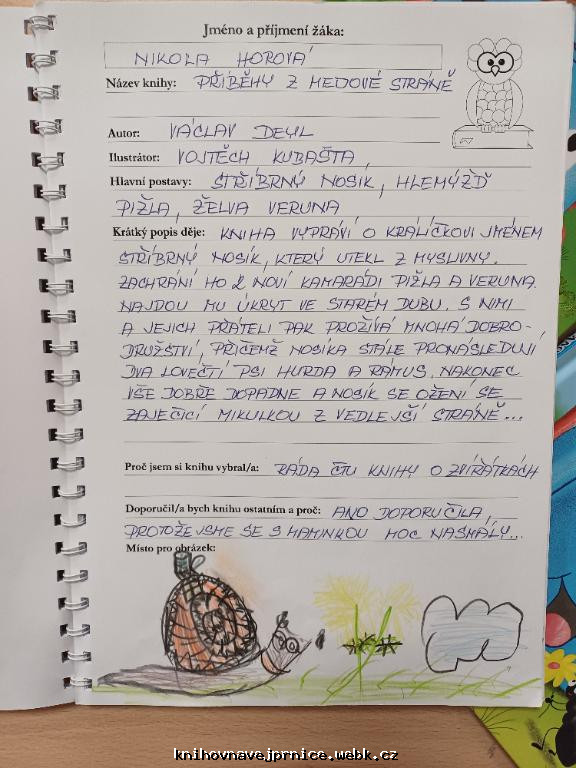 Jméno a příjmení žáka:
NIKOLA HOROVÁ
Název knihy: PŘÍBĚHY Z MEDOVÉ STRÁNĚ
Autor: VÁCLAV DEYL
Ilustrátor: VOJTĚCH KUBAŠTA
Hlavní postavy: STŘÍBRNÝ NOSÍK, HLEMÝŽĎ
PIŽLA, ŽELVA VERUNA
Krátký popis děje: KNIHA VYPRÁVÍ O KRÁLÍČKOVI JMÉNEM
STŘÍBRNÝ NOSÍK, KTERÝ UTEKL Z MYSLIVNY.
ZACHRÁNÍ HO 2 NOVÍ KAMARÁDI PIŽLA A VERUNA.
NAJDOU MU ÚKRYT VE STARÉM DUBU. S NIMI
A JEJICH PŘÁTELI PAK PROŽÍVÁ MNOHÁ DOBRO-
DRUŽSTVÍ, PŘIČEMŽ NOSÍKA STÁLE PRONÁSLEDUJÍ
DVA LOVEČTÍ PSI HURDA A RÁMUS. NAKONEC
VŠE DOBŘE DOPADNE A NOSÍK SE OŽENÍ SE
ZAJEČICÍ MIKULKOU Z VEDLEJŠÍ STRÁNĚ...
Proč jsem si knihu vybral/a: RÁDA ČTU KNIHY O ZVÍŘÁTKÁCH
Doporučil/a bych knihu ostatním a proč: ANO DOPORUČILA,
PROTOŽE JSME SE S MAMINKOU MOC NASMÁLY...
Místo pro obrázek:
knihovnavejprnice.webk.cz